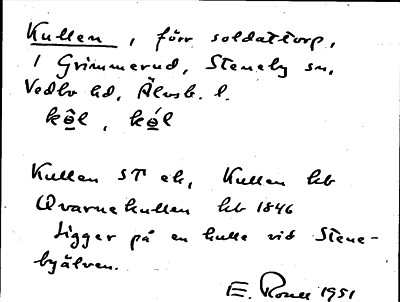 Kullen, förr soldattorp,
i Grimmerud, Steneby sn,
Vedbo hd, Älvsb. l.
Kullen ST ek, Kullen hb
Qvarnekullen hb 1846
Ligger på en kulle vid Stene-
byälven.
E. 1951